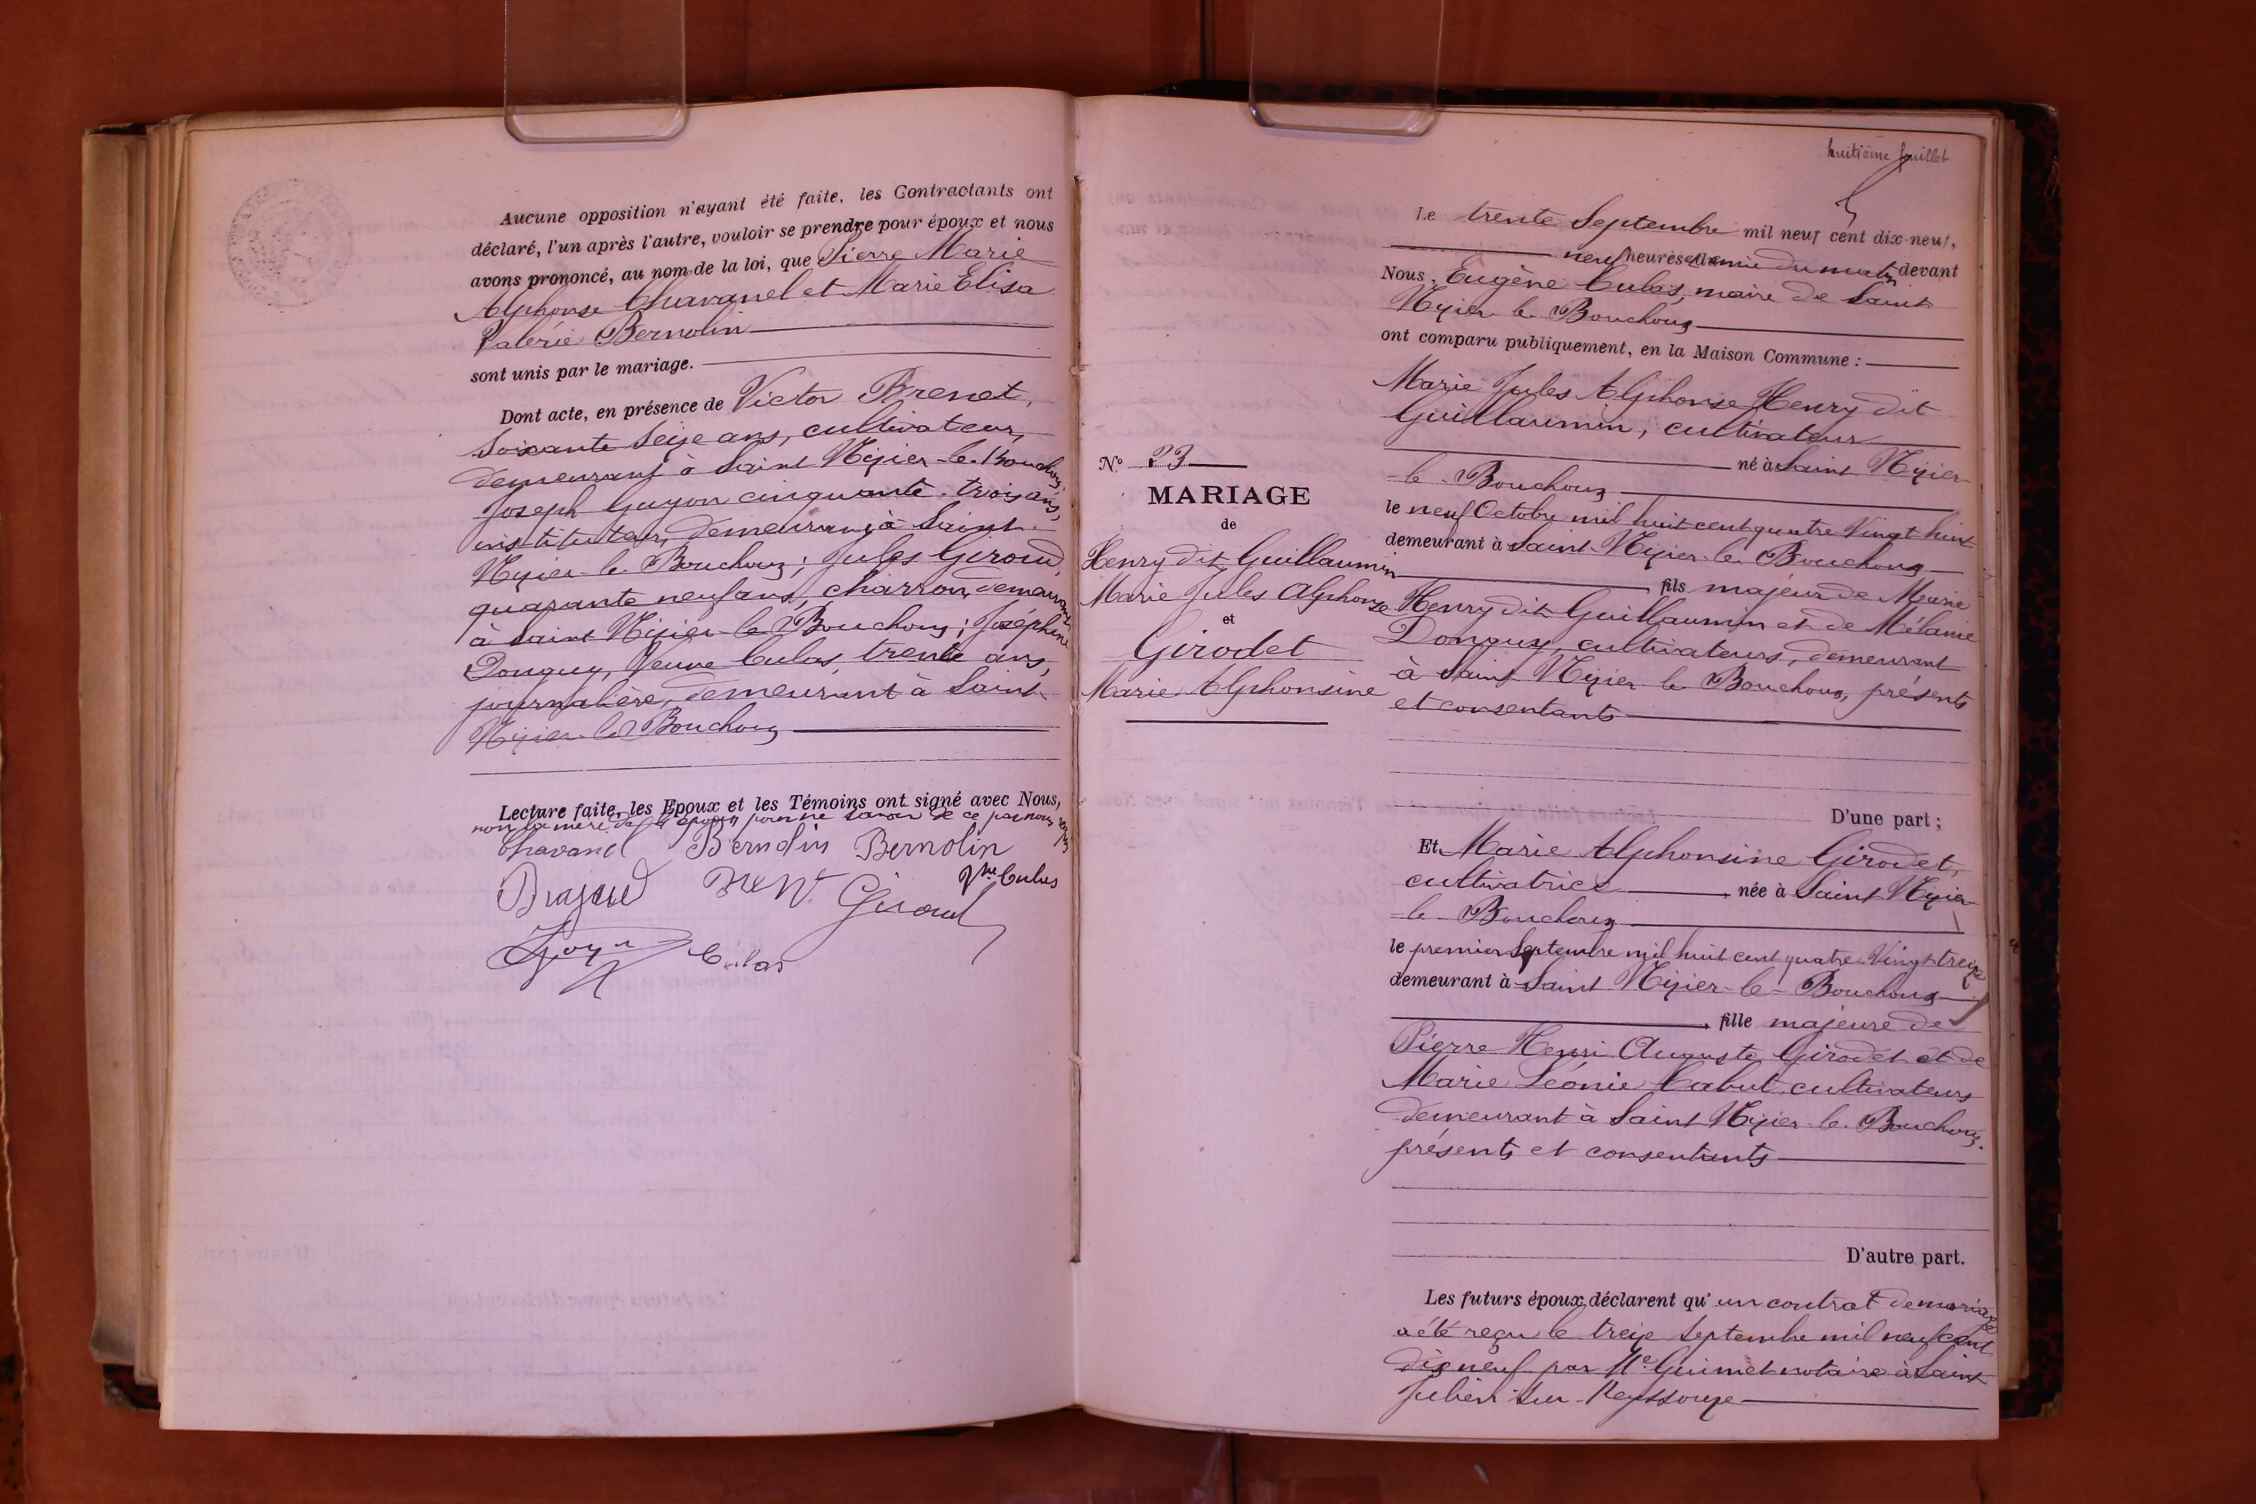 Aucune opposition n'ayant été faite, les Contractants ont
déclaré, l'un après l'autre, vouloir se prendre pour époux et nous
avons prononcé, au nom de la loi, que Pierre Marie
Alphonse Chavanel et Marie Elisa
Valérie Bernolin
sont unis par le mariage.
Dont acte, en présence de Victor Brenet,
soixante seize ans, cultivateur,
demeurant à Saint Nizier-le-Bouchoux;
Joseph Guyon cinquante-trois ans,
instituteur, demeurant à Saint-
Nizier-le-Bouchoux; Jules Giroud,
quarante neuf ans, charron, demeurant
à Saint Nizier-le-Bouchoux; Joséphine
Donguy, Veuve Culas, trente ans,
journalière, demeurant à Saint-
Nizier-le-Bouchoux
Lecture faite, les Epoux et les Témoins ont signé avec Nous,
non la mère de l'époux pour ne savoir de ce par nous requis
Chavanel Bernolin Bernolin
Vve Culas
Giroud
Culas
huitième feuillet
Le trente Septembre mil neuf cent dix-neuf,
neuf heures et demie du matin devant
Nous, Eugène Culas, maire de Saint
Nizier-le-Bouchoux
ont comparu publiquement, en la Maison Commune :
Marie Jules Alphonse Henry dit
Guillaumin, cultivateur
né à Saint Nizier-
-le-Bouchoux
le neuf Octobre mil huit cent quatre Vingt huit
demeurant à Saint-Nizier-le-Bouchoux
fils majeur de Marie
Henry dit Guillaumin et de Mélanie
Donguy, cultivateurs, demeurant
à Saint Nizier le Bouchoux, présents
et consentants
D'une part ;
N° 23
MARIAGE
de
Henry dit Guillaumin
Marie Jules Alphonse
et
Girodet
Marie Alphonsine
Et Marie Alphonsine Girodet,
cultivatrice, née à Saint Nizier-
-le-Bouchoux
le premier Septembre mil huit cent quatre-Vingt-treize
demeurant à Saint Nizier-le-Bouchoux
, fille majeure de
Pierre Henri Auguste Girodet et de
Marie Léonie Cabut, cultivateurs
demeurant à Saint Nizier-le-Bouchoux.
présents et consentants
D'autre part.
Les futurs époux déclarent qu'un contrat de mariage
a été reçu le treize Septembre mil neuf cent
dix neuf par Me Guimet notaire à Saint
Julien-sur-Reyssouze